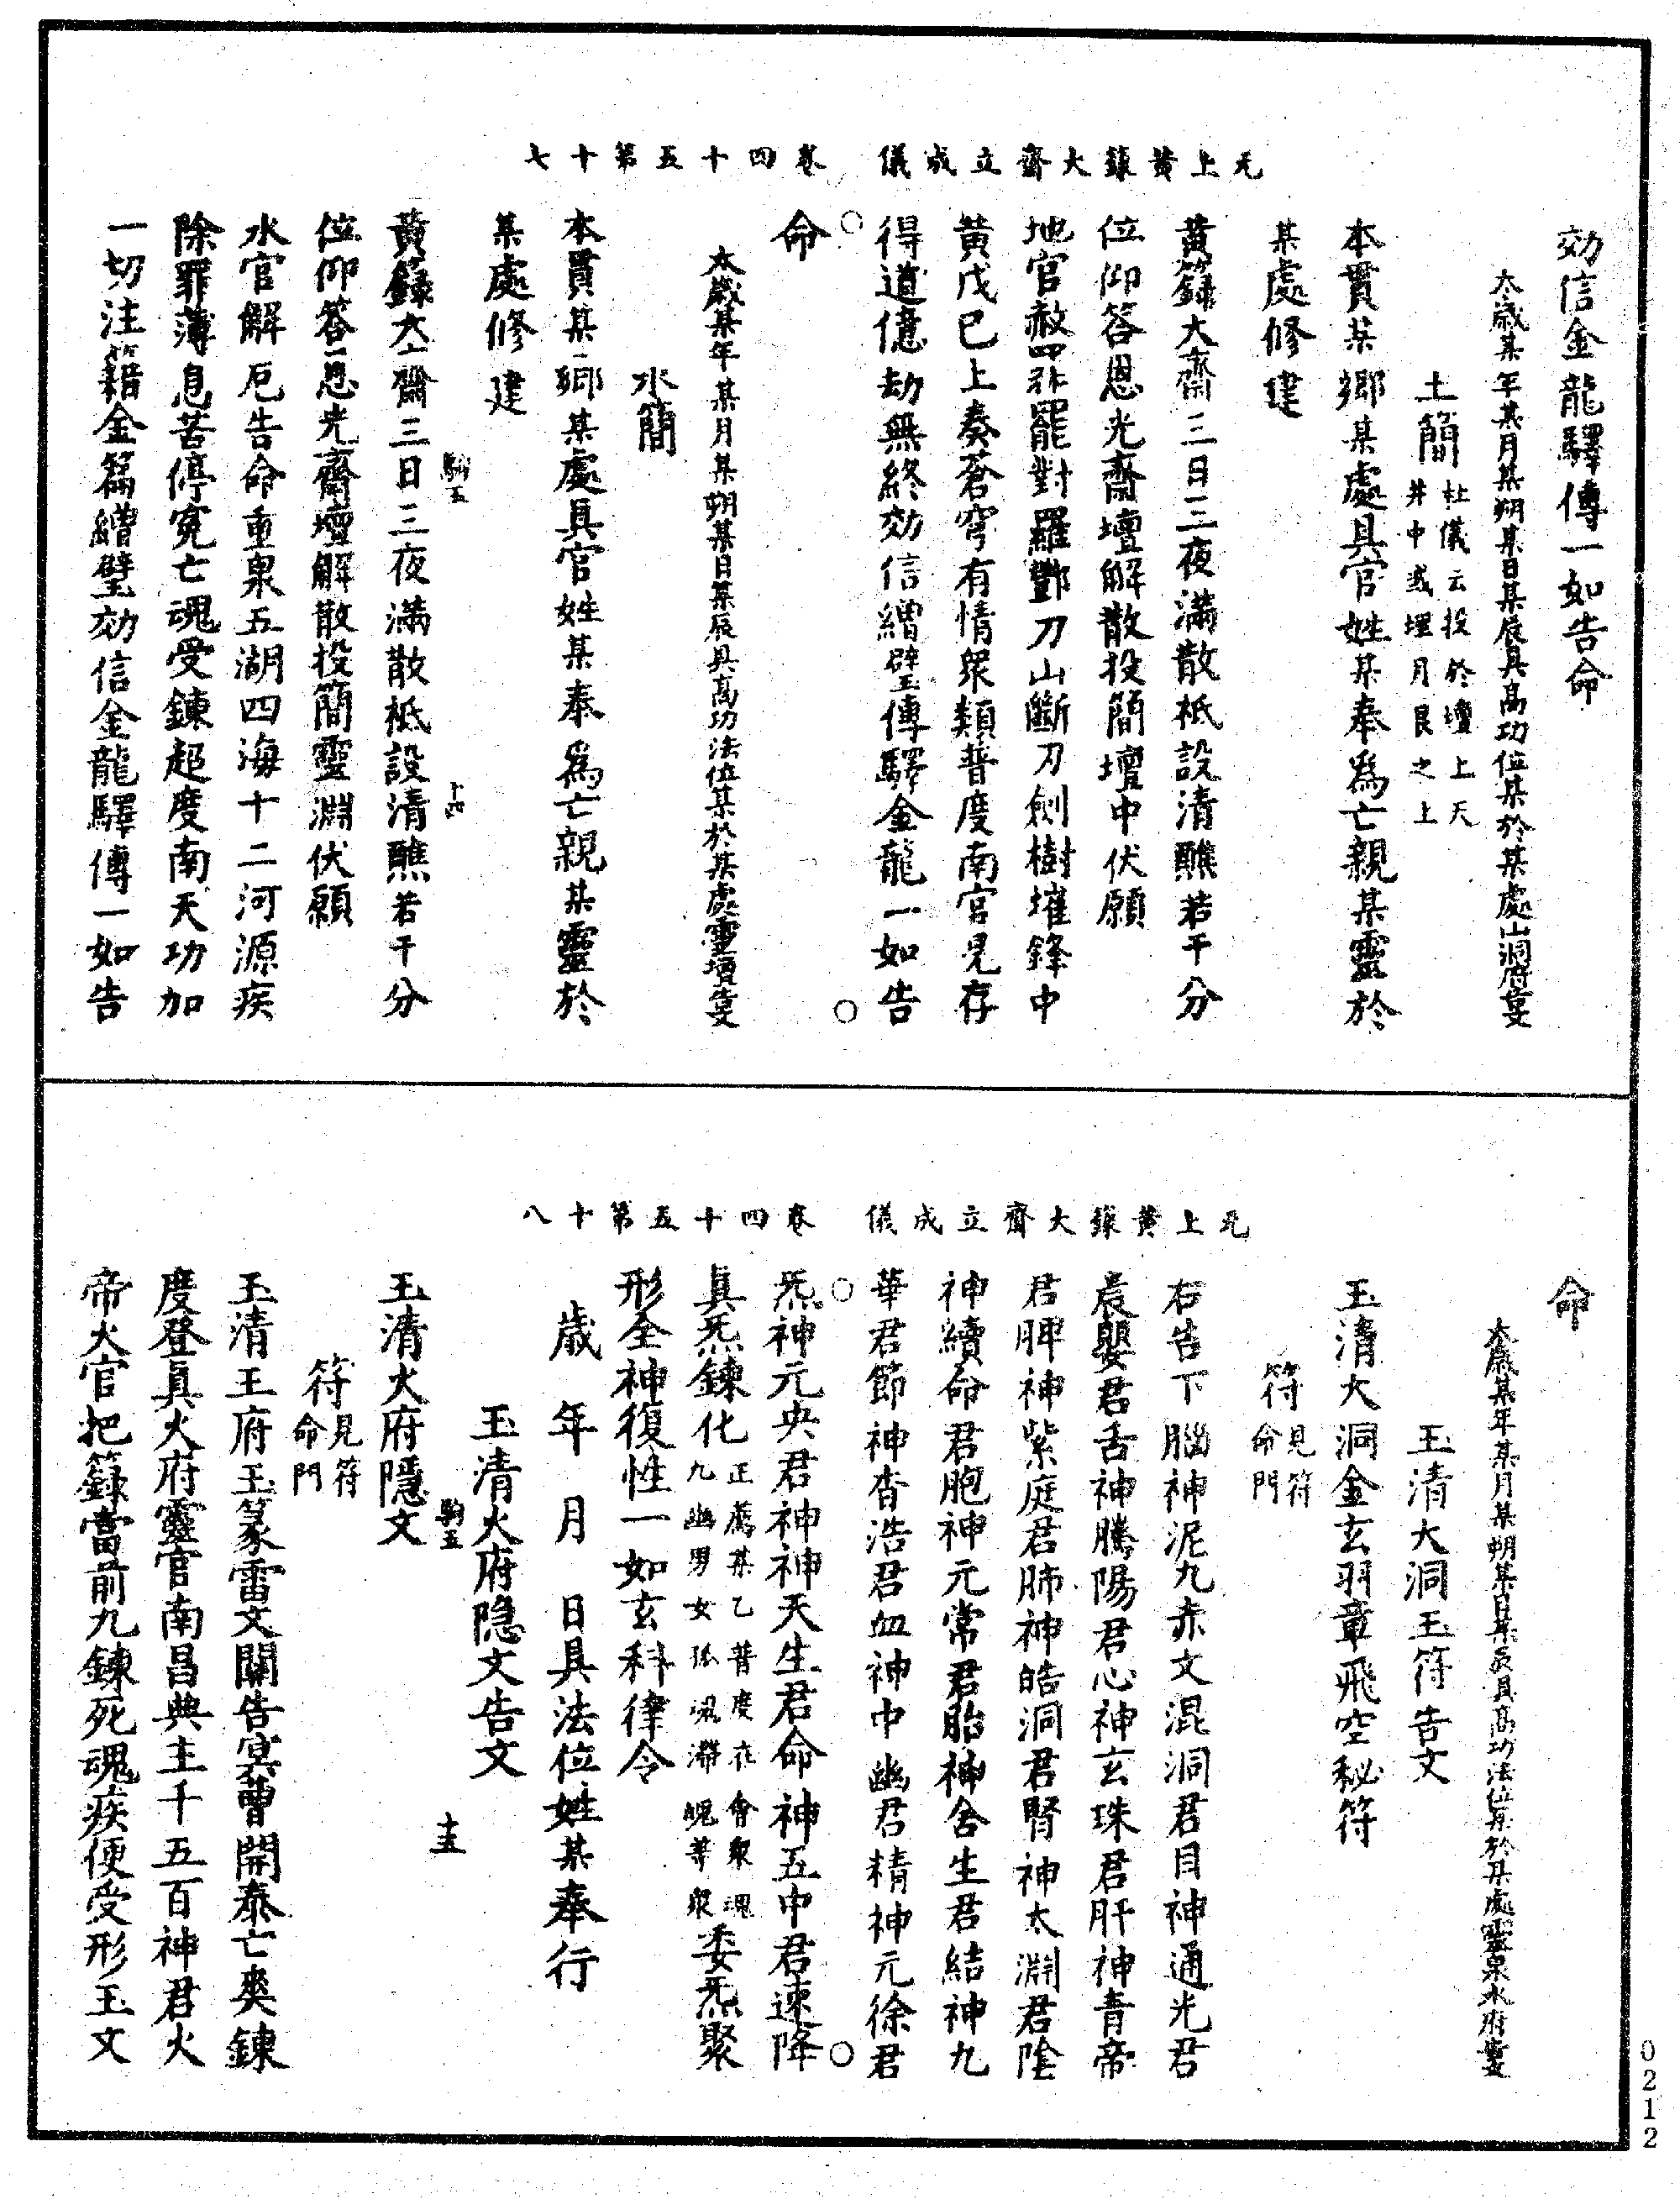 无上黃籙大齋立成儀　卷四十五第十七
効信金龍驛傳一如告命
太歲某年某月某朔某日某辰具高功位某於某處山洞府告文
土簡杜儀云投於壇上天井中或埋月艮之上
本貫某鄉某處具官姓某奉爲亡親某靈於
某處修建
黃籙大齋三日三夜滿散祗設清醮若干分
位仰答恩光齋壇解散投簡壇中伏願
地官赦罪罷對羅酆刀山斷刀劍樹摧鋒中
黃戊己上奏蒼穹有情衆類普度南宮見存
得道億劫無終効信繒璧傳驛金龍一如告
命
太歲某年某月某朔某日某辰具高功法位某於某處靈壇告文
水簡
本貫某鄉某處具官姓某奉爲亡親某靈於
某處修建
駒五　十四
黃籙大齋三日三夜滿散祗設清醮若干分
位仰答恩光齋壇解散投簡靈淵伏願
水官解厄告命重泉五湖四海十二河源疾
除罪薄息苦停寃亡魂受鍊超度南天功加
一切注籍金篇繒璧効信金龍驛傳一如告
无上黃籙大齋立成儀　卷四十五第十八
命
太歲某年某月某朔某日某辰具高功法位某於某處靈泉水府告文
玉清大洞玉符告文
玉清大洞金玄羽章飛空秘符
符見符命門
右告下腦神泥九赤文混洞君目神通光君
晨嬰君舌神騰陽君心神玄珠君肝神青帝
君脾神紫庭君肺神皓洞君腎神太淵君陰
神續命君胞神元常君胎神舍生君結神九
華君節神杳浩君血神中幽君精神元徐君
炁神元央君神神天生君命神五中君速降
真炁鍊化正薦某乙普度在會衆魂九幽男女孤魂滯魄等衆委炁聚
形全神復性一如玄科律令
歲　年　月　日具法位姓某奉行
玉清火府隱文告文
駒五　十五
玉清火府隱文
符見符命門
玉清王府玉篆雷文關告冥曹開泰亡爽鍊
度登真火府靈官南昌典主千五百神君火
帝火官把籙當前九鍊死魂疾便受形玉文
0212